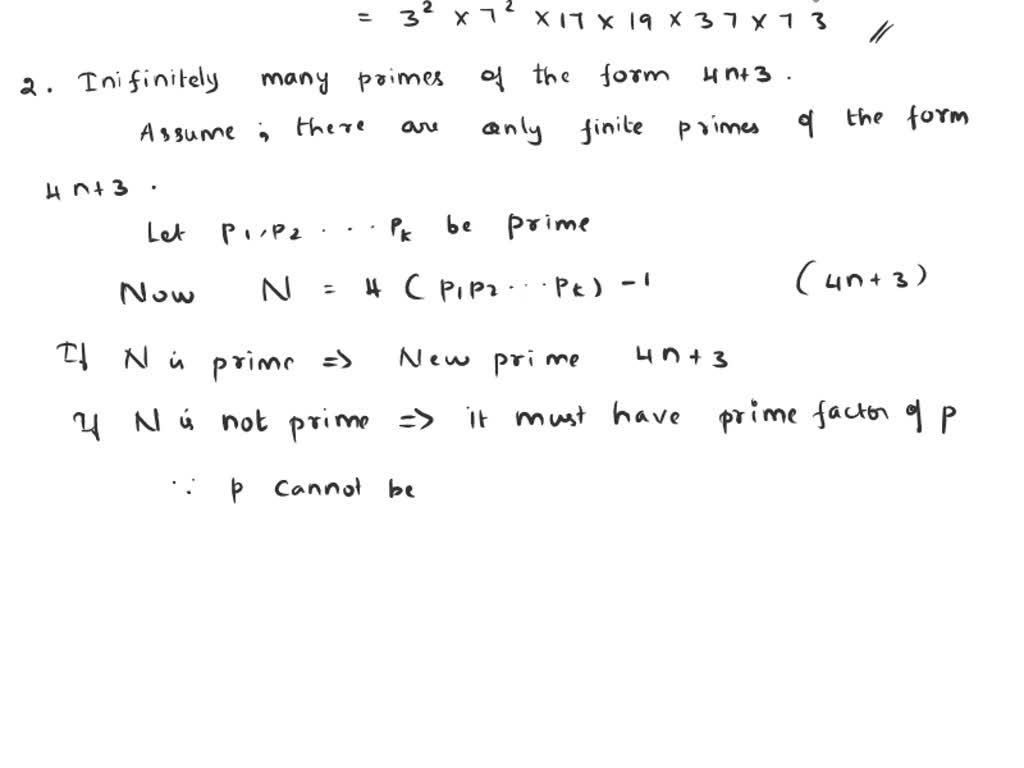 = 3² × 7² × 17 × 19 × 37 × 73 //
2. Inifinitely many primes of the form 4n+3.
Assume ; there are only finite primes of the form
4n+3 .
Let p1,p2 ... Pk be prime
Now N = 4 ( p1p2...pk) -1 (4n+3)
If N is prime => New prime 4n+3
If N is not prime => it must have prime factor of p
∵ p cannot be